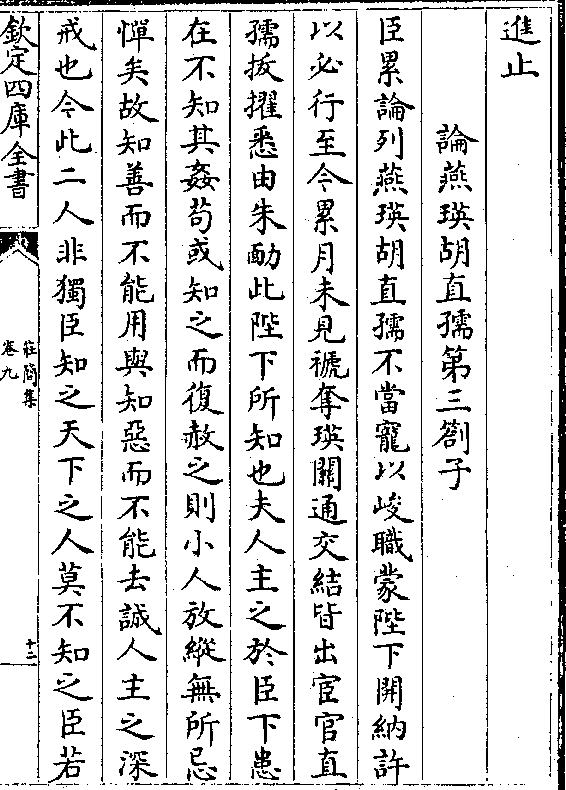 進止
論燕瑛胡直孺第三劄子
臣累論列燕瑛胡直孺不當寵以峻職蒙陛下開納許
以必行至今累月未見褫奪瑛關通交結皆出宦官直
孺拔擢悉由朱勔此陛下所知也夫人主之於臣下患
在不知其姦苟或知之而復赦之則小人放縱無所忌
憚矣故知善而不能用與知惡而不能去誠人主之深
戒也今此二人非獨臣知之天下之人莫不知之臣若
欽定四庫全書
莊簡集
卷九
十二